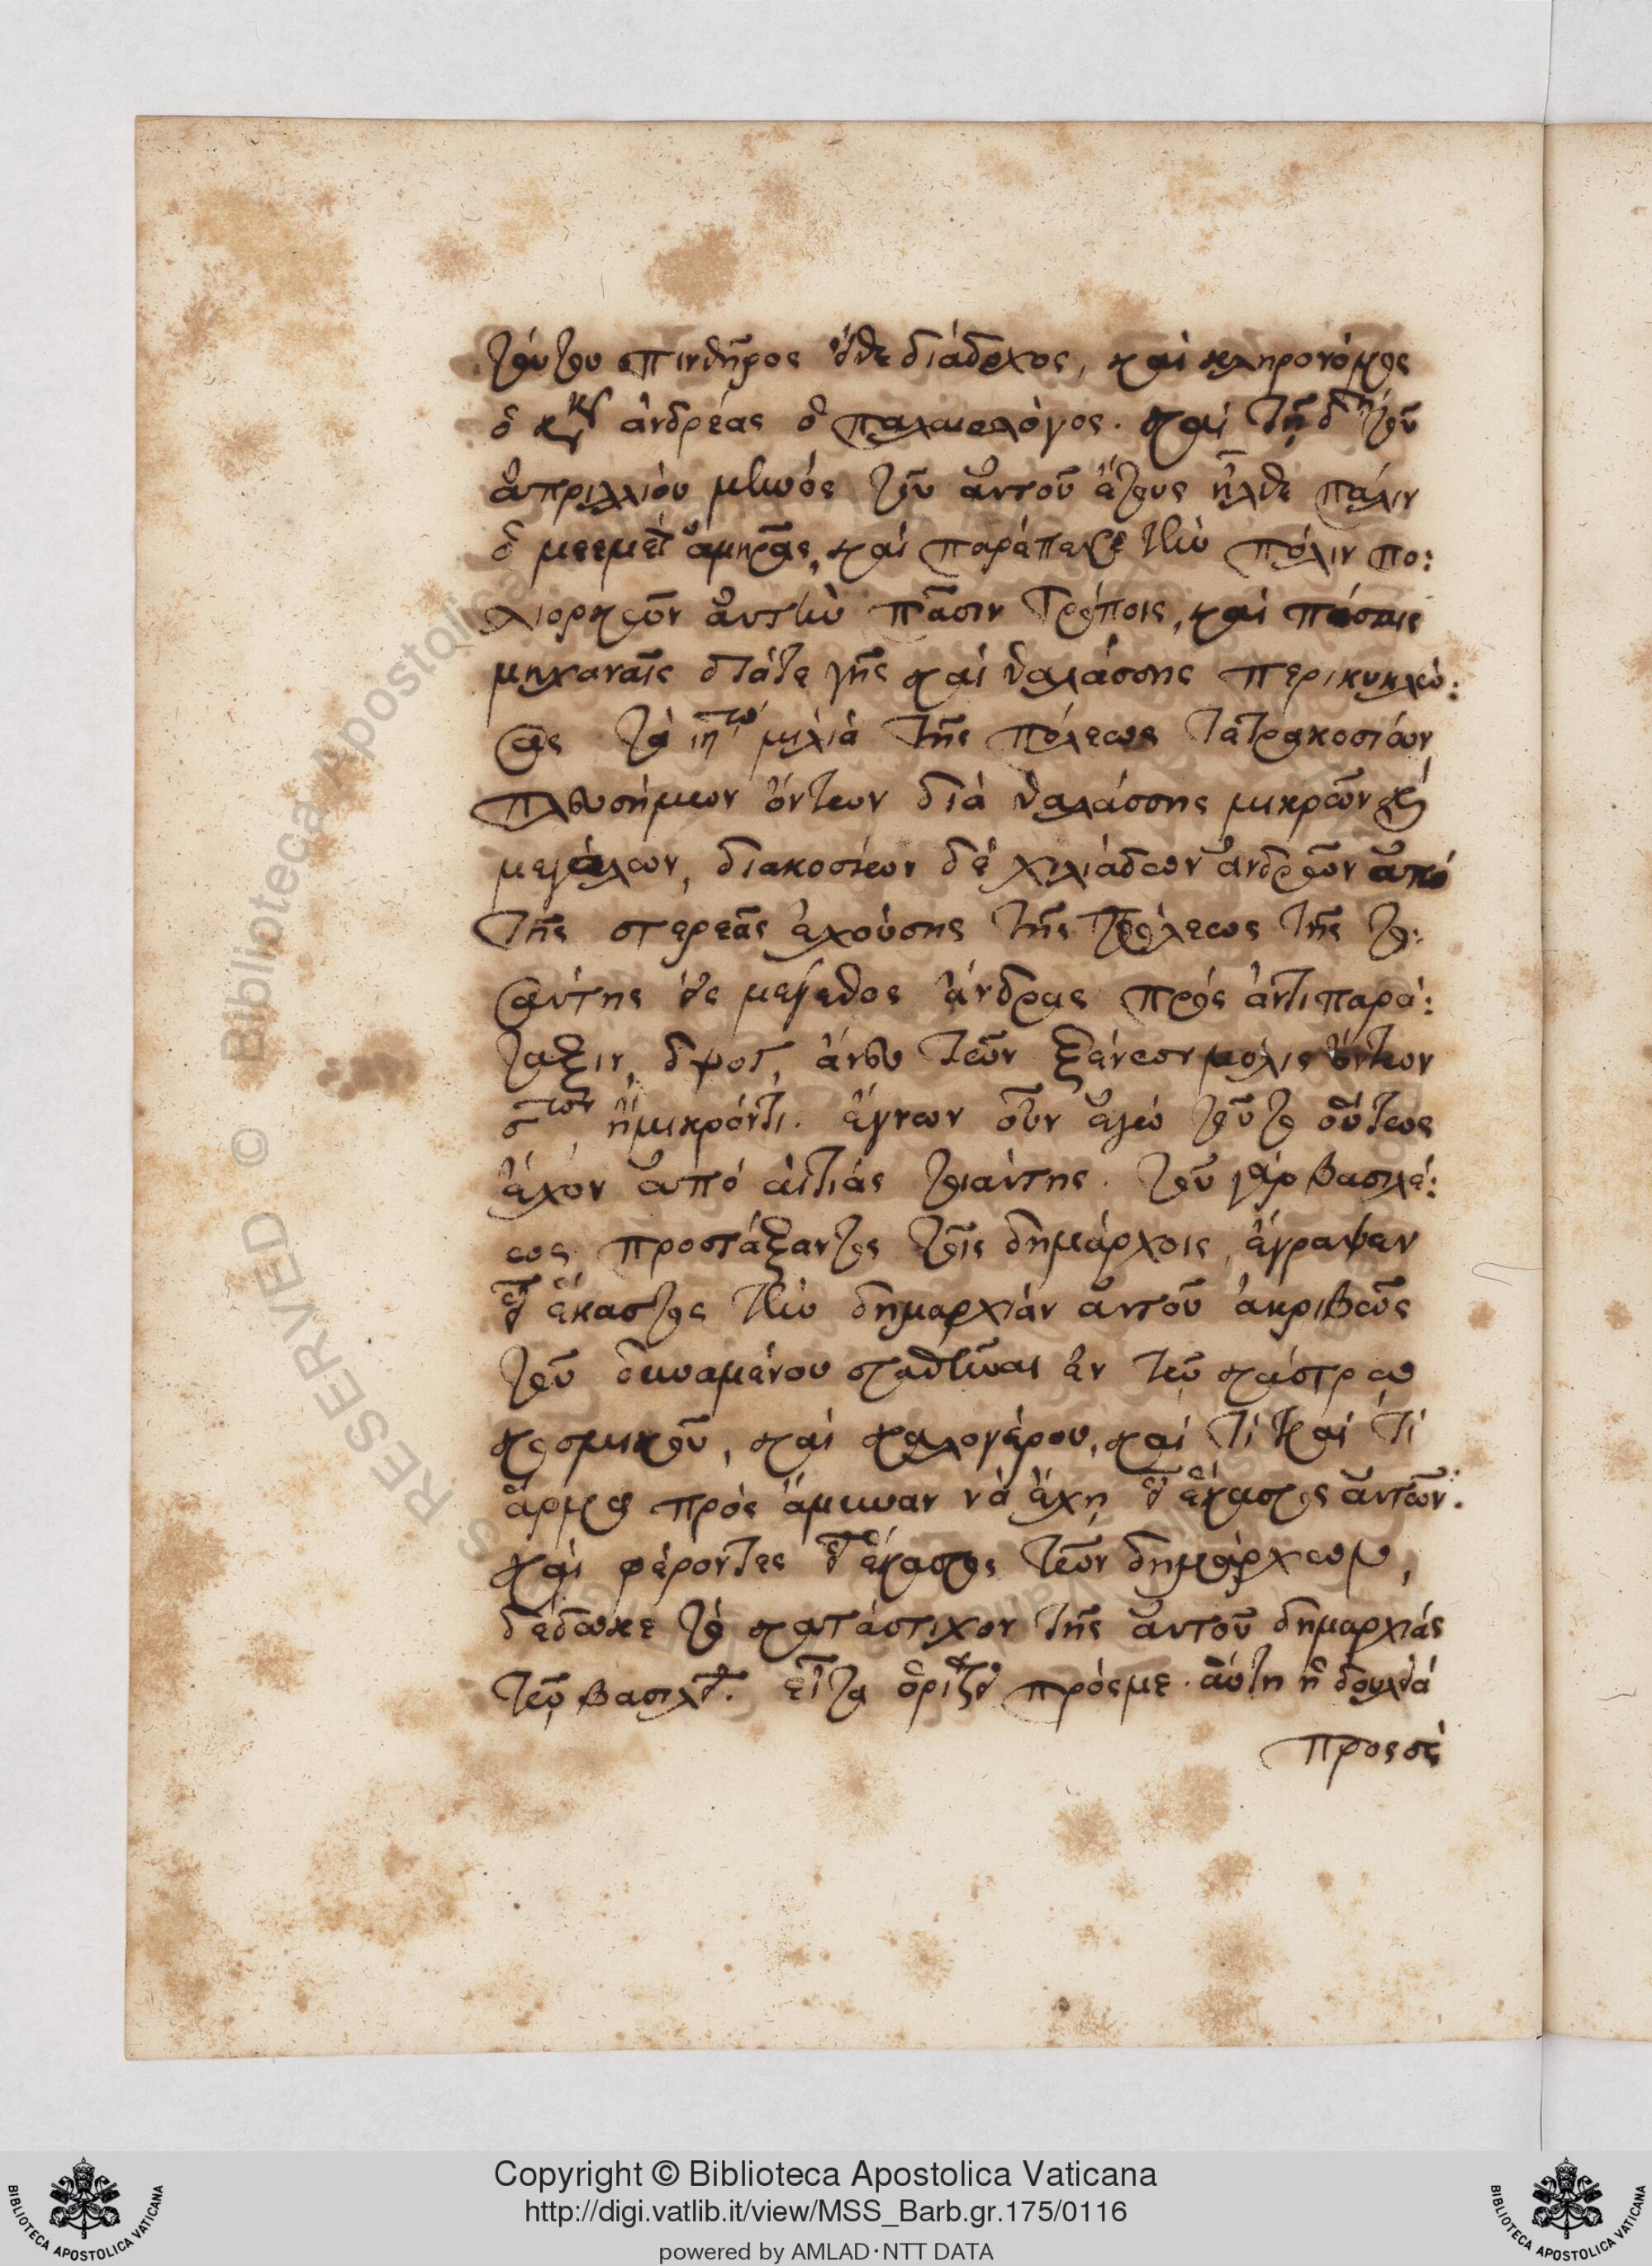 τούτου σπινθῆρος ὅδε διάδοχος, καὶ κληρονόμος
ὁ κὺρ ἀνδρέας ὁ παλαιολόγος. καὶ τῇ δῃ τοῦ
ἀπριλλίου μηνός τοῦ αὐτοῦ ἔτους ἦλθε πάλιν
ὁ μεεμὲτ ἀμηρᾶς, καὶ παρέπεσε τὴν πόλιν πο:
λιορκῶν αὐτὴν πᾶσιν τρόποις, καὶ πάσαις
μηχαναῖς διά τε γῆς καὶ θαλάσσης περικυκλώ:
σας τὰ ιη τῶ μίλια τῆς πόλεως τετρακοσίων
πλευσήμων ὄντων διὰ θαλάσσης μικρῶν καὶ
μεγάλων, διακοσίων δὲ χιλιάδων ἀνδρῶν ἀπό
τῆς στερεᾶς ἐχούσης τῆς πόλεως τῆς το:
σαύτης εἰς μέγεθος ἄνδρας πρὸς ἀντιπαρά:
ταξιν, ͵δψογ, ἄνευ τῶν ξένων μόλις ὄντων
ϛ των, ἢ μικρόντι. ἔγνων οὖν ἐγὼ τοῦτο οὕτως
ἔχον ἀπό αἰτίας τοιαύτης. τοῦ γὰρ βασιλέ:
ως προστάξαντος τοῖς δημάρχοις, ἔγραψεν
εἷς ἕκαστος τὴν δημαρχίαν αὐτοῦ ἀκριβῶς
τοῦ δυναμένου σταθῆναι ἐν τῷ κάστρῳ
κοσμικοῦ, καὶ καλογέρου, καὶ τί καὶ τί
ἄρμα πρὸς ἄμυναν νὰ ἔχῃ εἷς ἕκαστος αὐτῶν.
καὶ φέροντες εἷς ἕκαστος τῶν δημάρχων,
δέδωκε τὸ κατάστιχον τῆς αὐτοῦ δημαρχίας
τῷ βασιλεῖ. εἶτα ὁρίζει πρόςμε. αὕτη ἡ δουλειά
προςσὲ
Copyright © Biblioteca Apostolica Vaticana
http://digi.vatlib.it/view/MSS_Barb.gr.175/0116
powered by AMLAD·NTT DATA